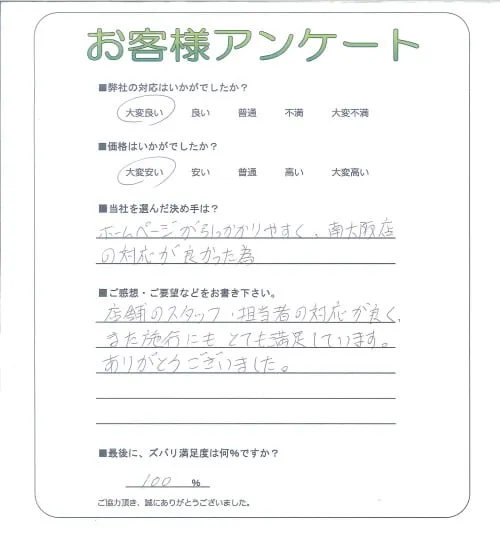 お客様アンケート
■弊社の対応はいかがでしたか？
大変良い 良い 普通 不満 大変不満
■価格はいかがでしたか？
大変安い 安い 普通 高い 大変高い
■当社を選んだ決め手は？
ホームページが引っかかりやすく、南大阪店
の対応が良かった為
■ご感想・ご要望などをお書き下さい。
店舗のスタッフ・担当者の対応が良く、
また施行にも とても満足しています。
ありがとうございました。
■最後に、ズバリ満足度は何%ですか？
100 %
ご協力頂き、誠にありがとうございました。